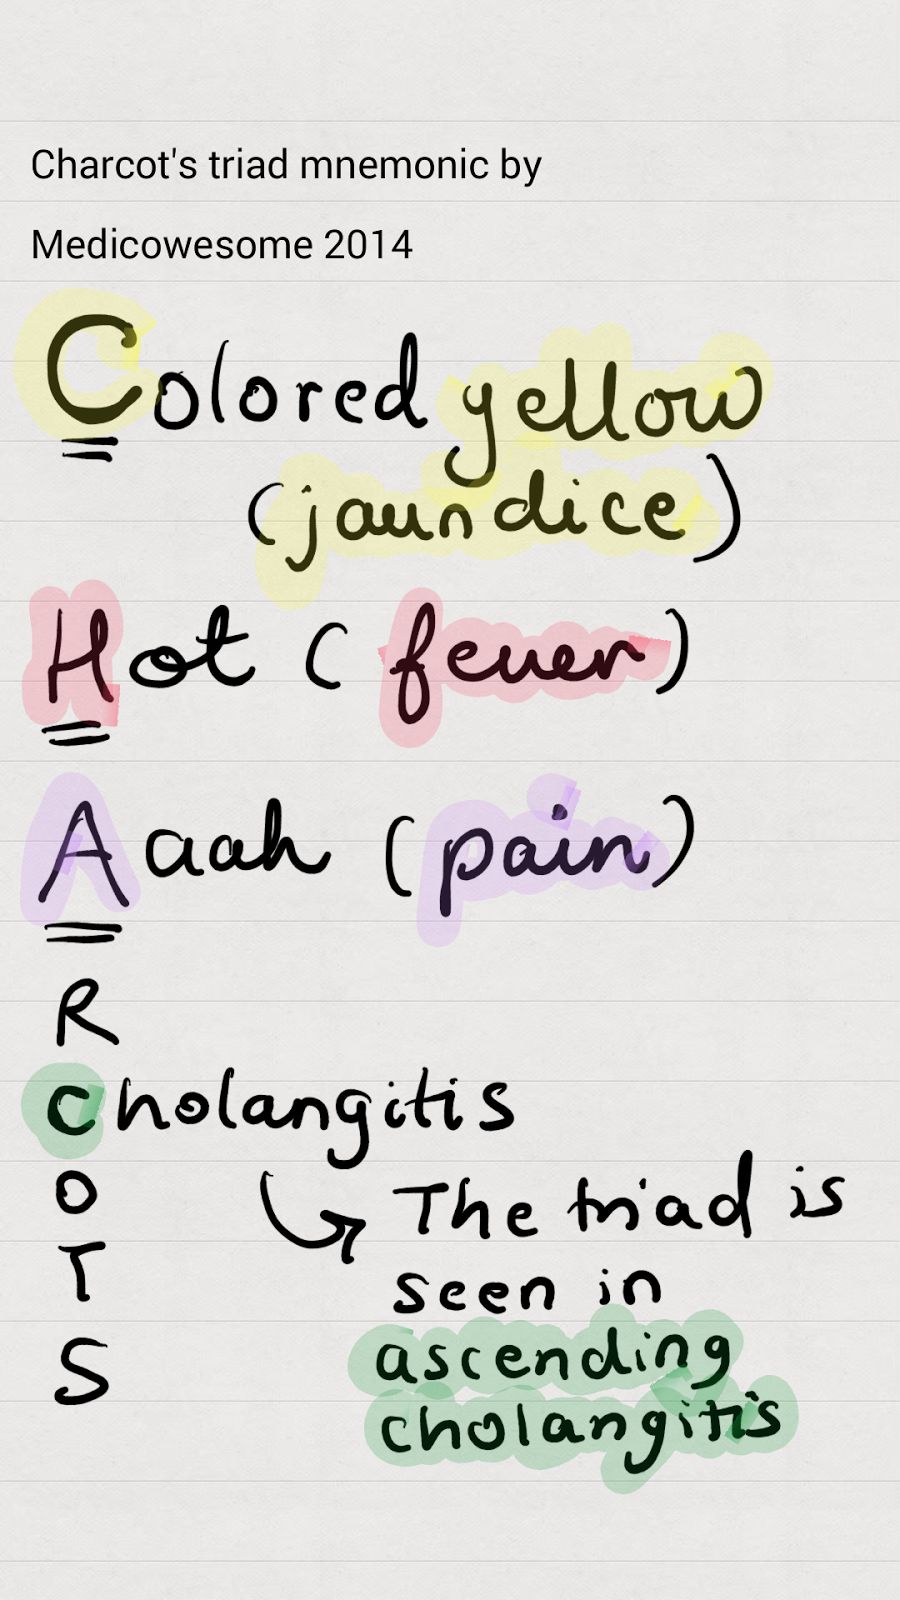 Charcot's triad mnemonic by
Medicowesome 2014
Colored yellow
(jaundice)
Hot (fever)
Aaah (pain)
R
cholangitis
O
The triad is
T
seen in
S
ascending
cholangitis